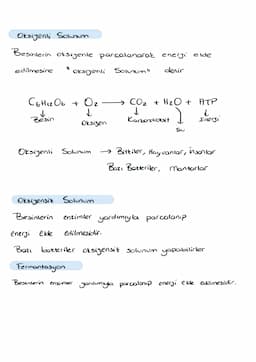 Oksijenli Solunum
Besinlerin oksijenle parçalanarak enerji elde
edilmesine "oksijenli Solunum" denir
C6H12O6 + O2 → CO2 + H2O + ATP
Besin Oksijen Karbondioksit Su Enerji
Oksijenli Solunum → Bitkiler, Hayvanlar, İnsanlar
Bazı Bakteriler, Mantarlar
Oksijensiz Solunum
Besinlerin enzimler yardımıyla parçalanıp
Enerji Elde Edilmesidir.
Bazı bakteriler oksijensiz solunum yapabilirler
Fermantasyon
Besinlerin enzimler yardımıyla parçalanıp enerji elde edilmesidir.